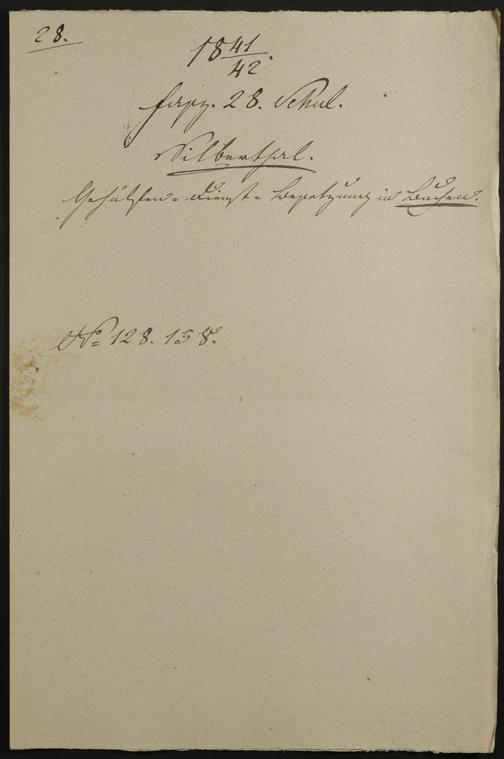 28.
18 41/42.
fasz. 28. Schul.
Silberthal.
Gehülfen-Dienst-Besetzung in Buchen.
No 128. 158.